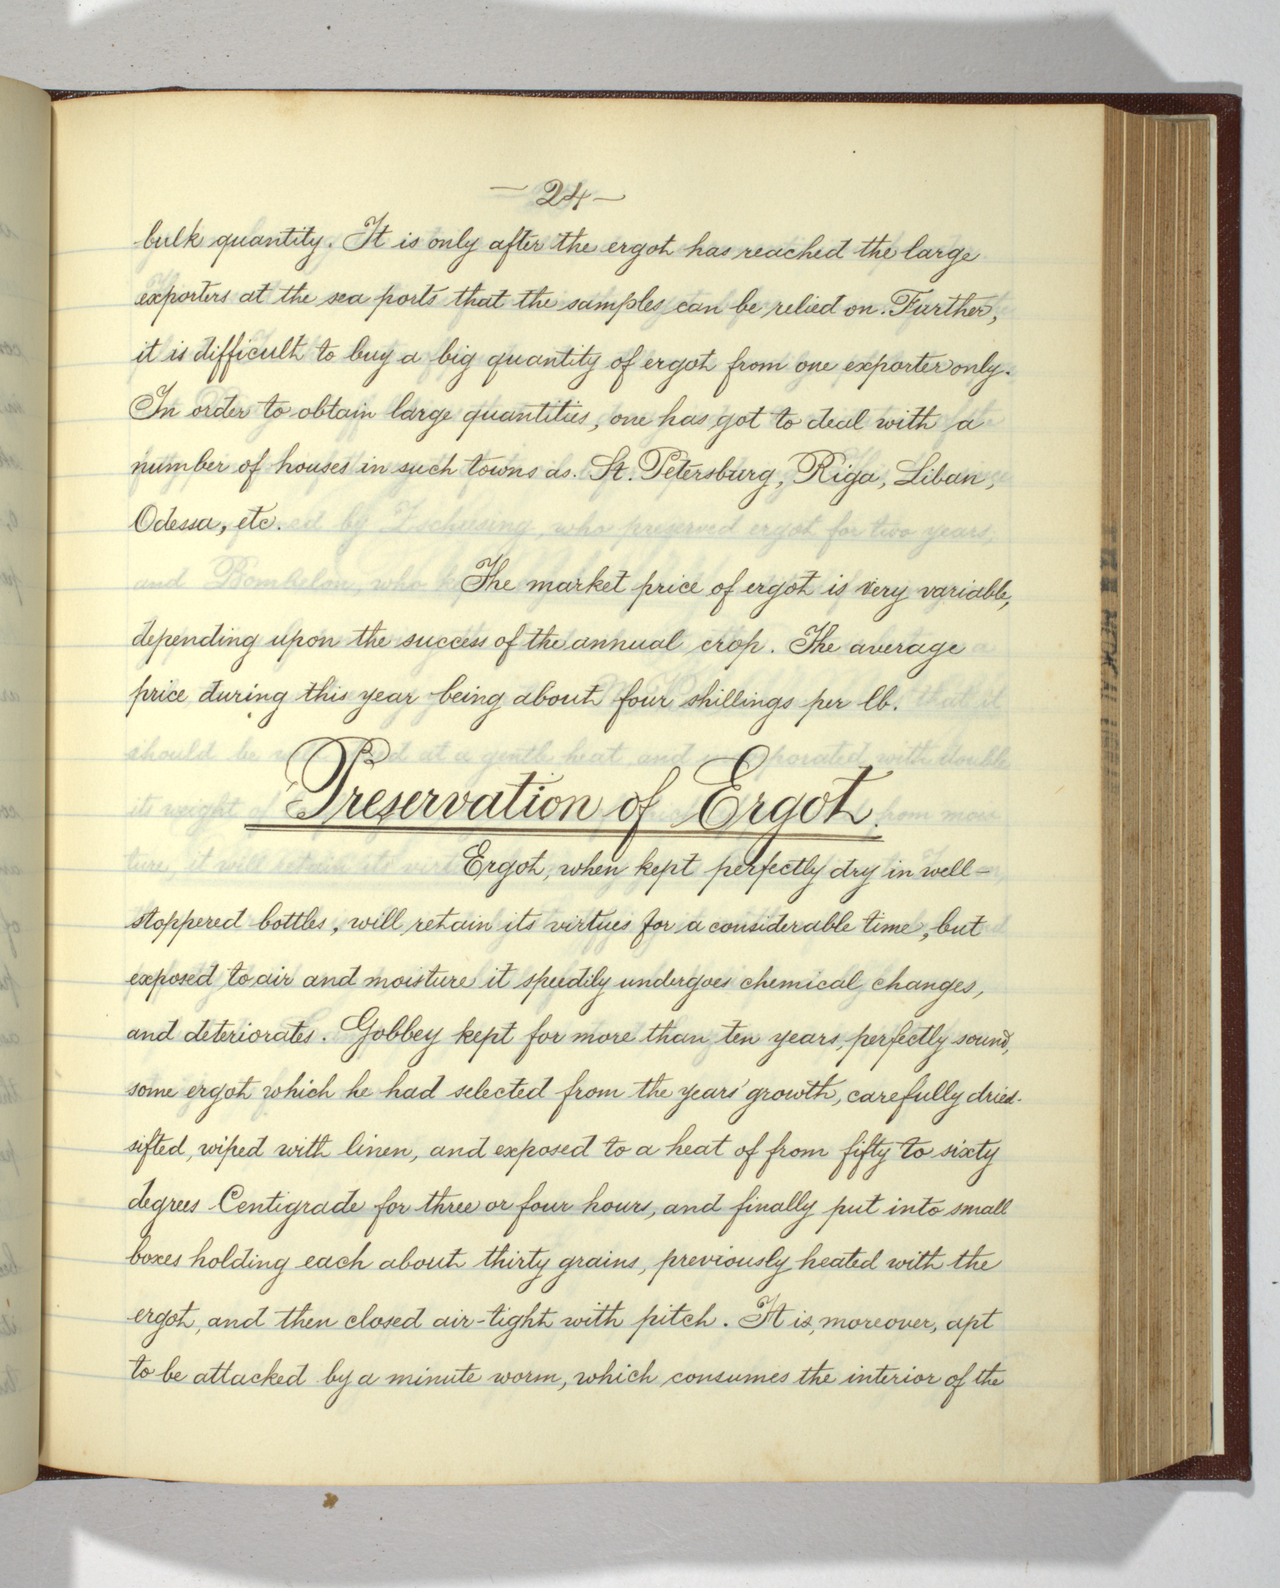 — 24 —
bulk quantity. It is only after the ergot has reached the large
exporters at the sea ports that the samples can be relied on. Further,
it is difficult to buy a big quantity of ergot from one exporter only.
In order to obtain large quantities, one has got to deal with a
number of houses in such towns as. St. Petersburg, Riga, Liban,
Odessa, etc.
The market price of ergot is very variable,
depending upon the success of the annual crop. The average
price during this year being about four shillings per lb.
Preservation of Ergot.
Ergot, when kept perfectly dry in well-
stoppered bottles, will retain its virtues for a considerable time, but
exposed to air and moisture it speedily undergoes chemical changes,
and deteriorates. Gobbey kept for more than ten years, perfectly sound,
some ergot which he had selected from the years' growth, carefully dried.
sifted, wiped with linen, and exposed to a heat of from fifty to sixty
degrees Centigrade for three or four hours, and finally put into small
boxes holding each about thirty grains, previously heated with the
ergot, and then closed air-tight with pitch. It is, moreover, apt
to be attacked by a minute worm, which consumes the interior of the